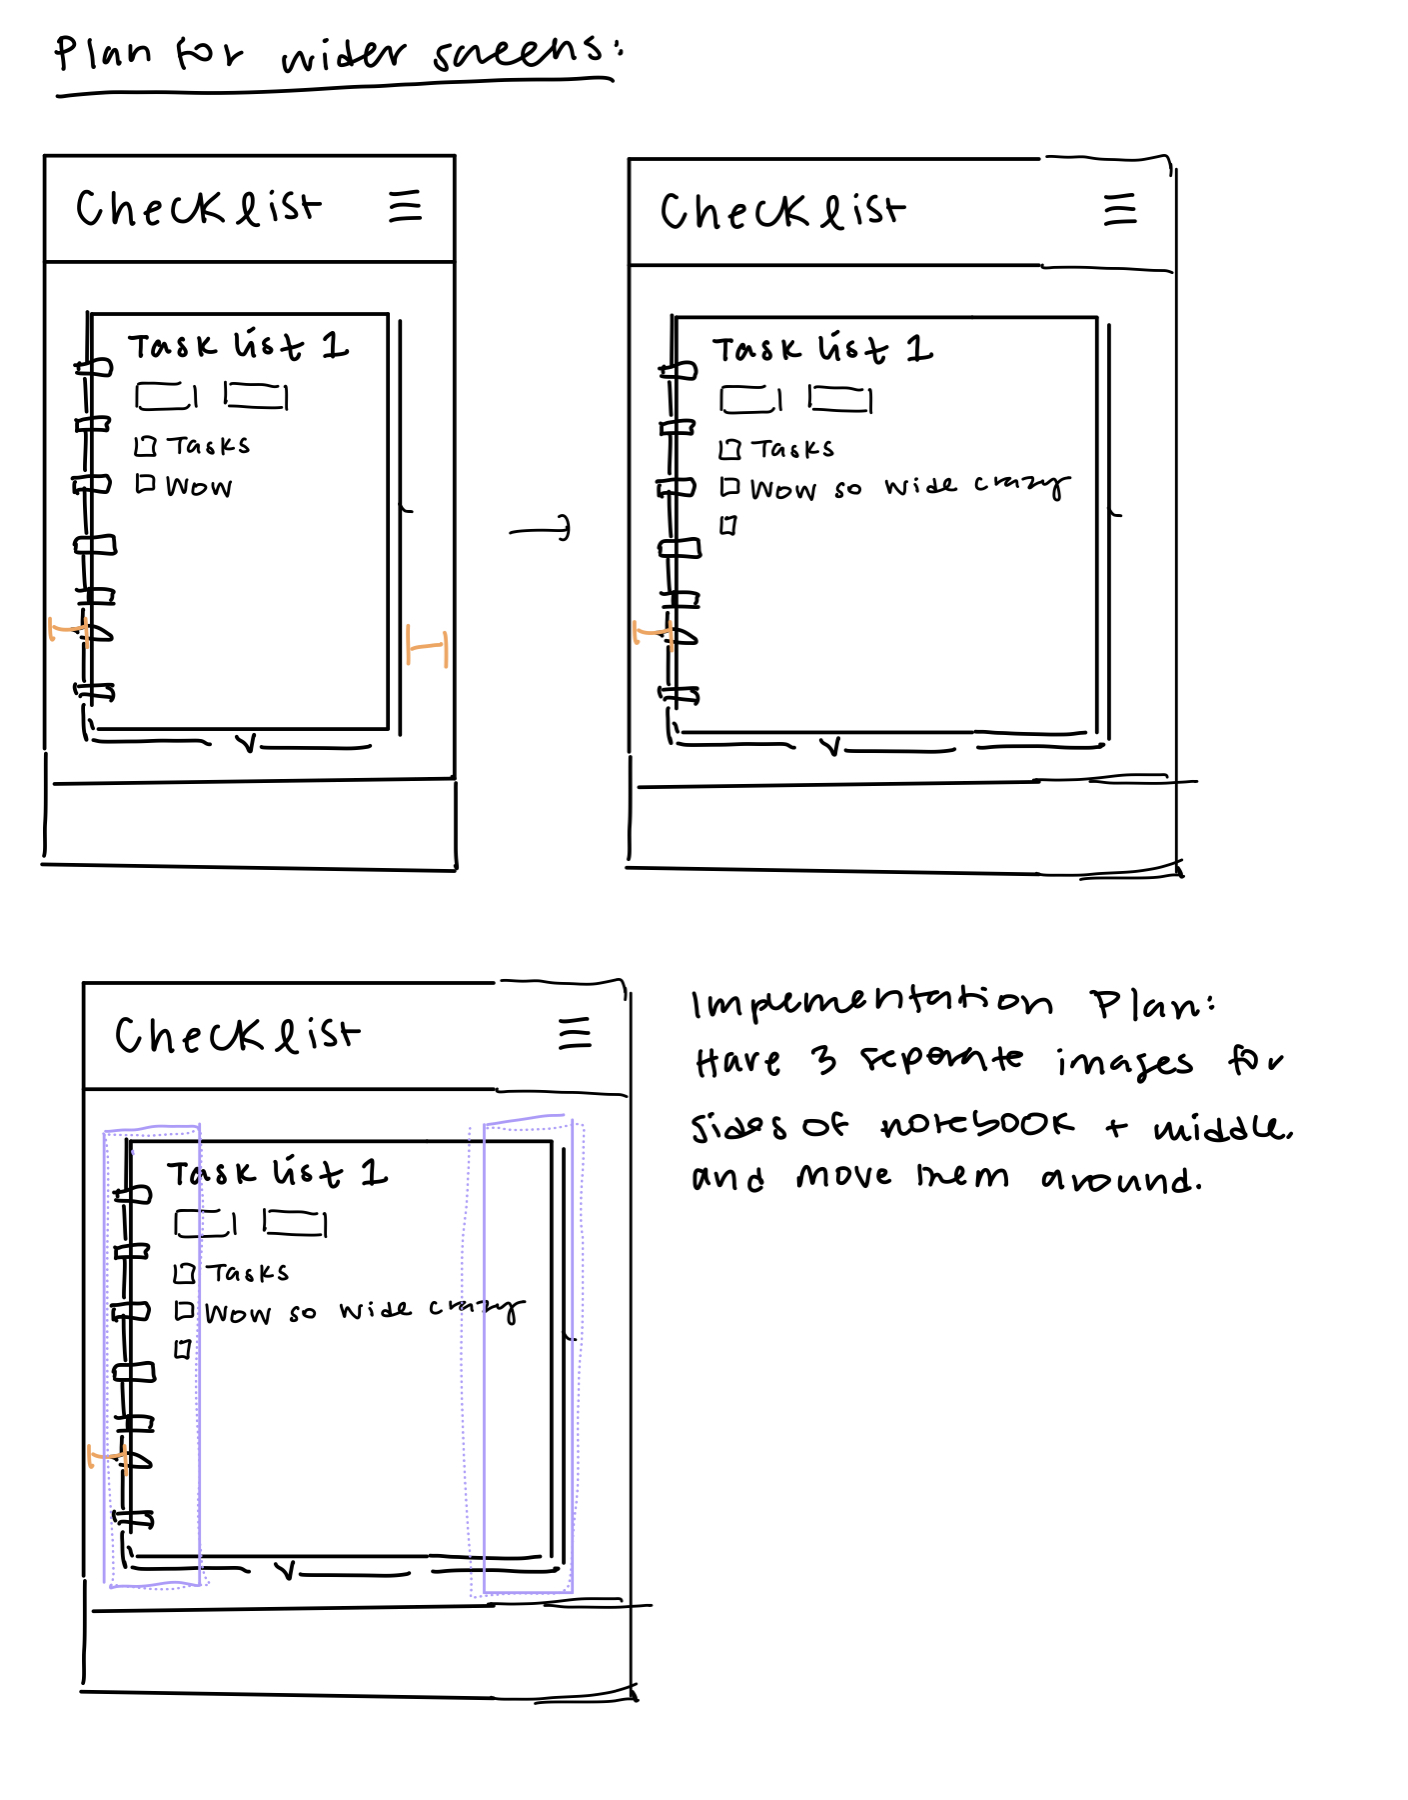 Plan for wider screens:
Checklist
Task list 1
Tasks
Wow
Checklist
Task list 1
Tasks
Wow so wide crazy
Checklist
Task list 1
Tasks
Wow so wide crazy
Implementation Plan:
Have 3 seperate images for
sides of notebook + middle.
and move them around.